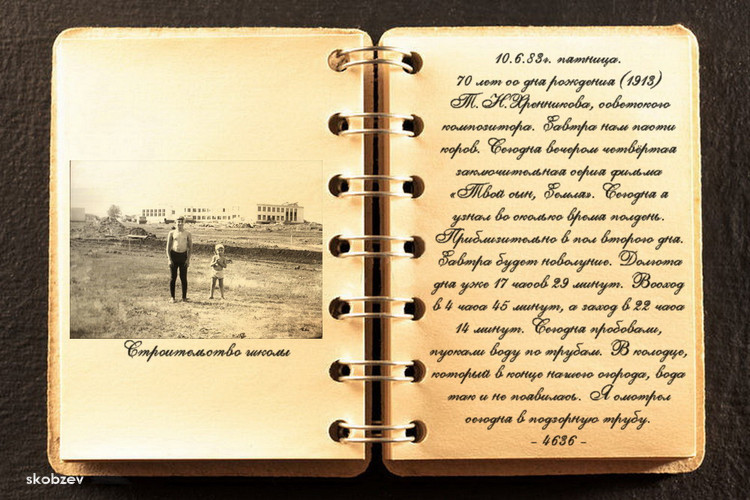 Строительство школы
10.6.83г. пятница.
70 лет со дня рождения (1913)
Т. Н. Хренникова, советского
композитора. Завтра нам пасти
коров. Сегодня вечером четвёртая
заключительная серия фильма
«Твой сын, Земля». Сегодня я
узнал во сколько время полдень.
Приблизительно в пол второго дня.
Завтра будет новолуние. Долгота
дня уже 17 часов 29 минут. Восход
в 4 часа 45 минут, а заход в 22 часа
14 минут. Сегодня пробовали,
пускали воду по трубам. В колодце,
который в конце нашего огорода, вода
так и не появилась. Я смотрел
сегодня в подзорную трубу.
- 4636 -
skobzev